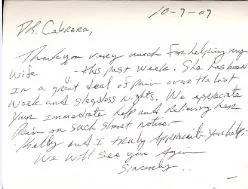 10-7-09
DR. Cabrera,
Thank you very much for helping my
wife - this past week. She has been
in a great deal of pain over the last
week and sleepless nights. We appreciate
your immediate help and relieving her
pain on such short notice.
Shelly and I truly appreciate your help.
We will see you again
Sincerely...